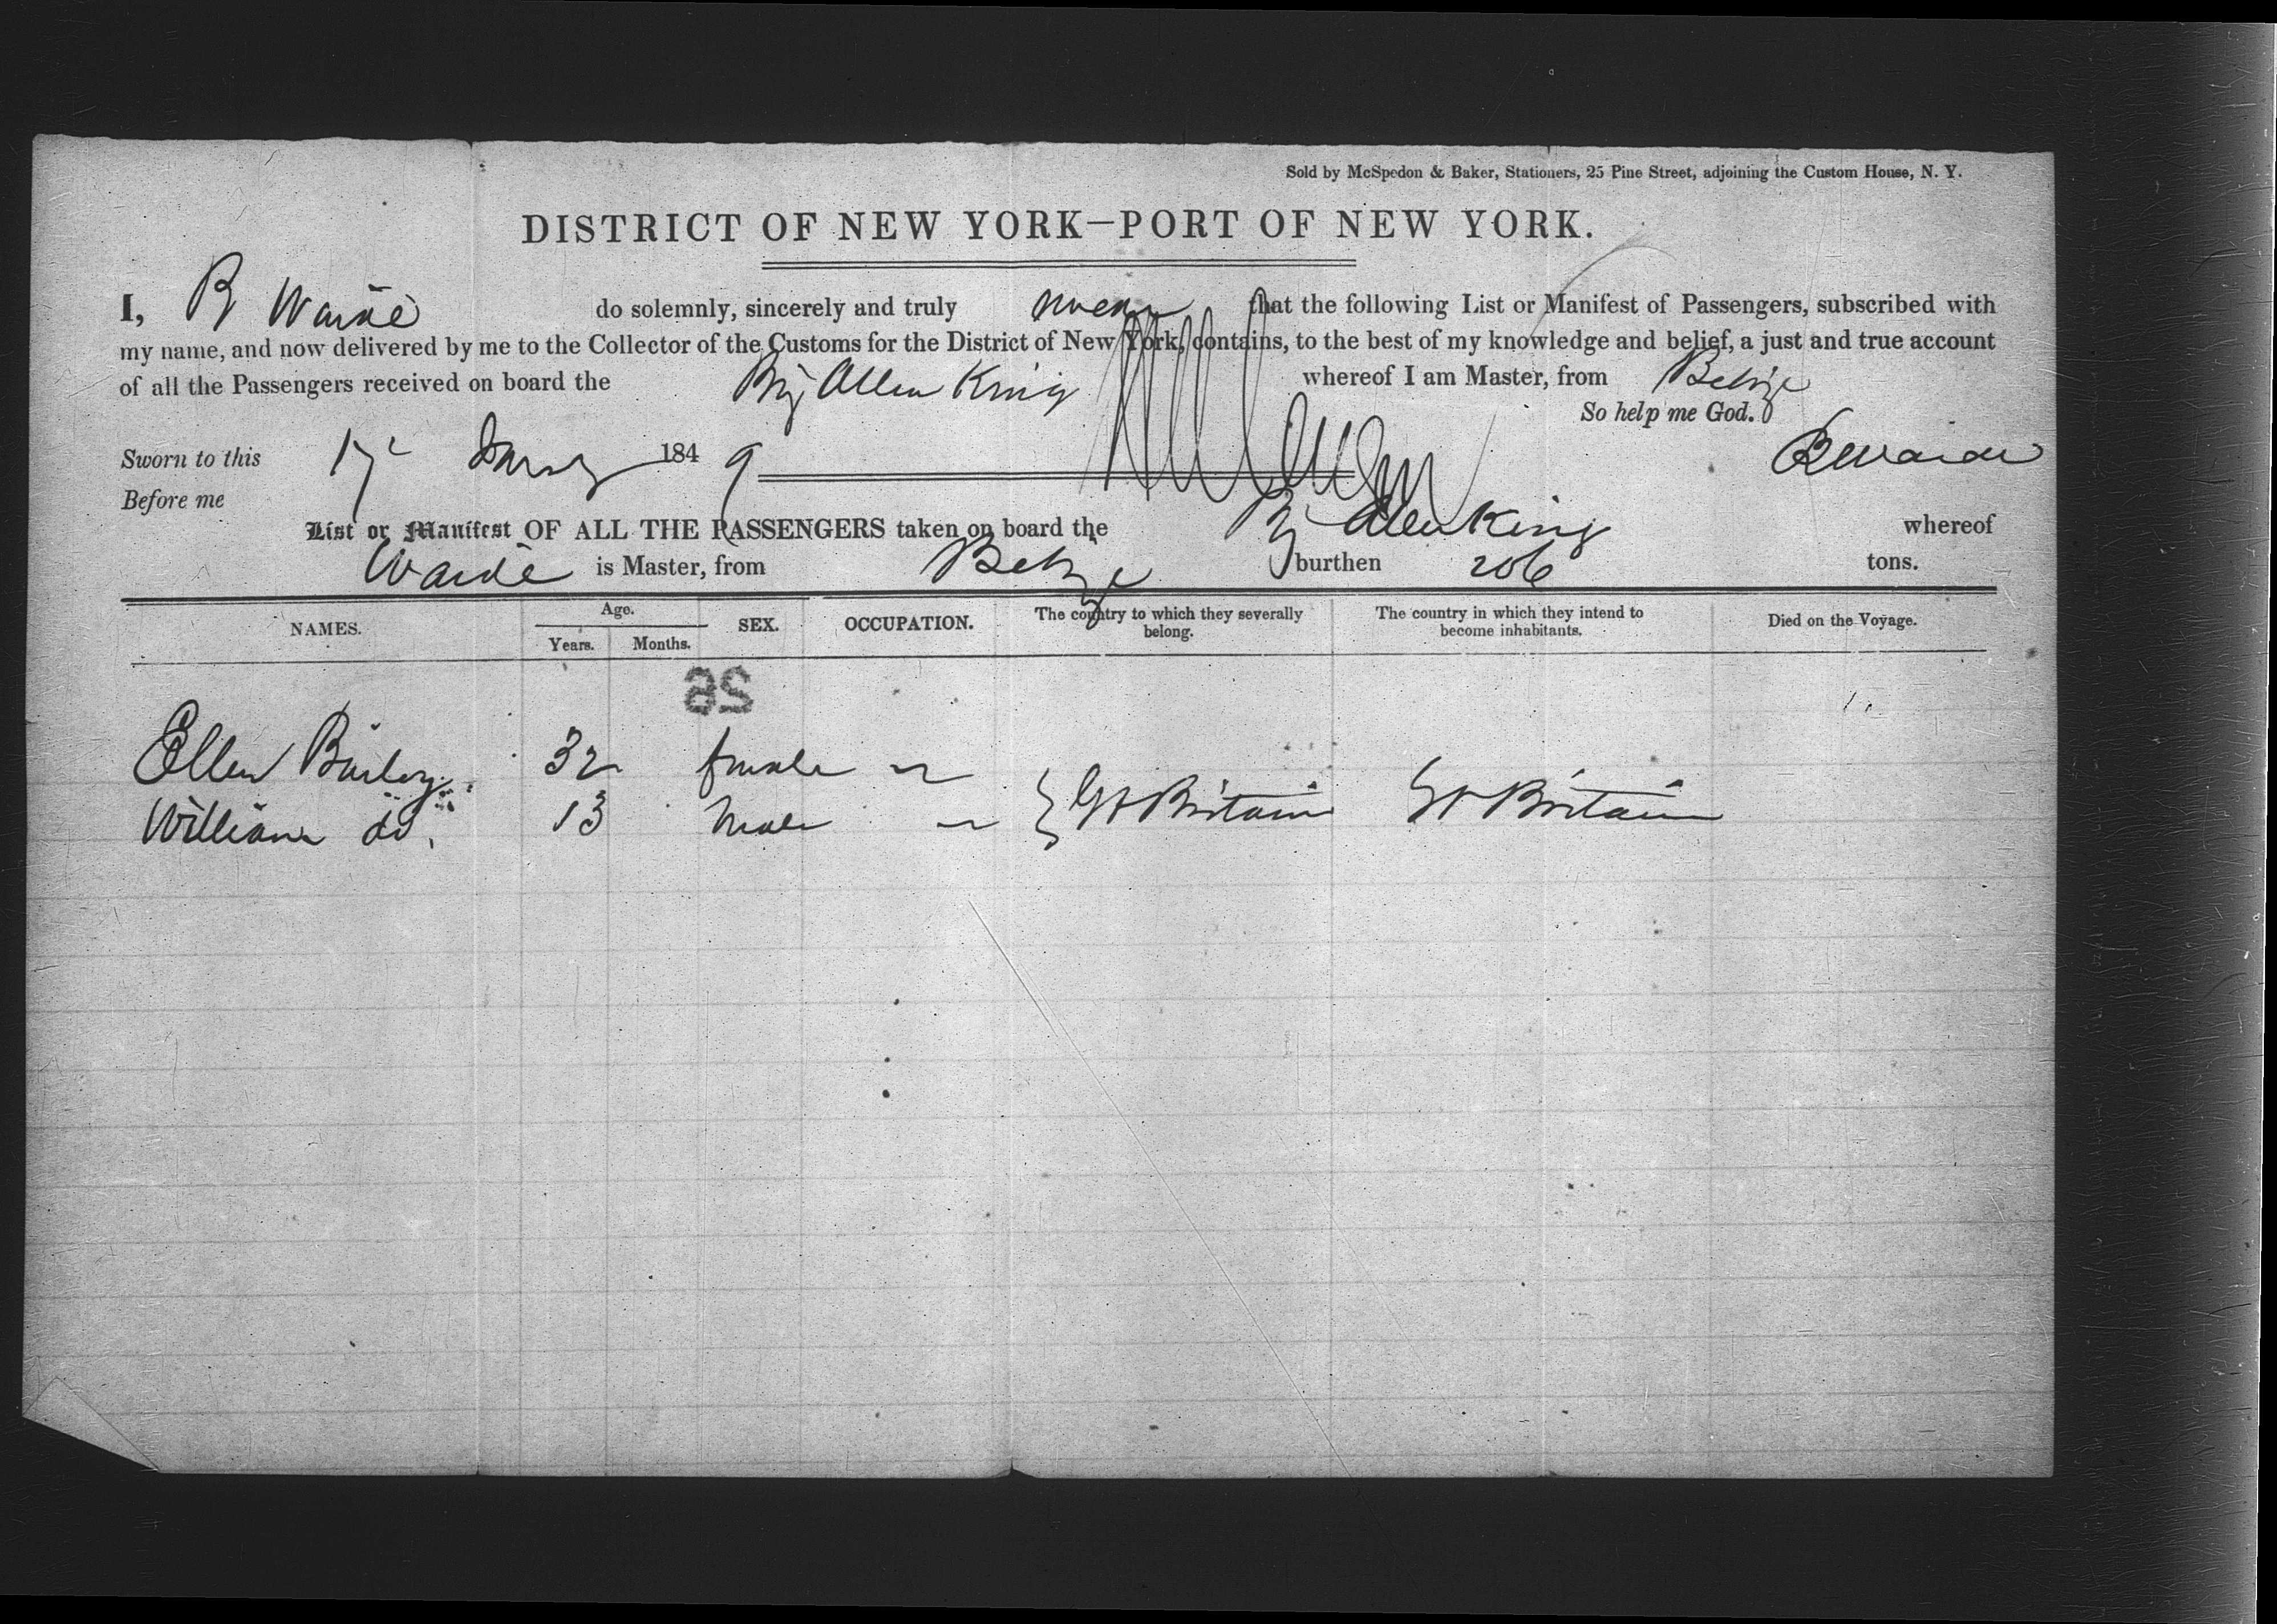 Sold by McSpedon & Baker, Stationers, 25 Pine Street, adjoining the Custom House, N. Y.
DISTRICT OF NEW YORK—PORT OF NEW YORK.
I, B Waide do solemnly, sincerely and truly swear that the following List or Manifest of Passengers, subscribed with
my name, and now delivered by me to the Collector of the Customs for the District of New York, contains, to the best of my knowledge and belief, a just and true account
of all the Passengers received on board the Brig Allen King whereof I am Master, from Belize
So help me God.
Sworn to this 17 1849 B Waide
Before me
List or Manifest OF ALL THE PASSENGERS taken on board the Brig Allen King whereof
Waide is Master, from Belize burthen 206 tons.
NAMES. Age. Years. Months. SEX. OCCUPATION. The country to which they severally belong. The country in which they intend to become inhabitants. Died on the Voyage.
26
Ellen Bailey 32 female
William do. 13 Male } Gt Britain Gt Britain